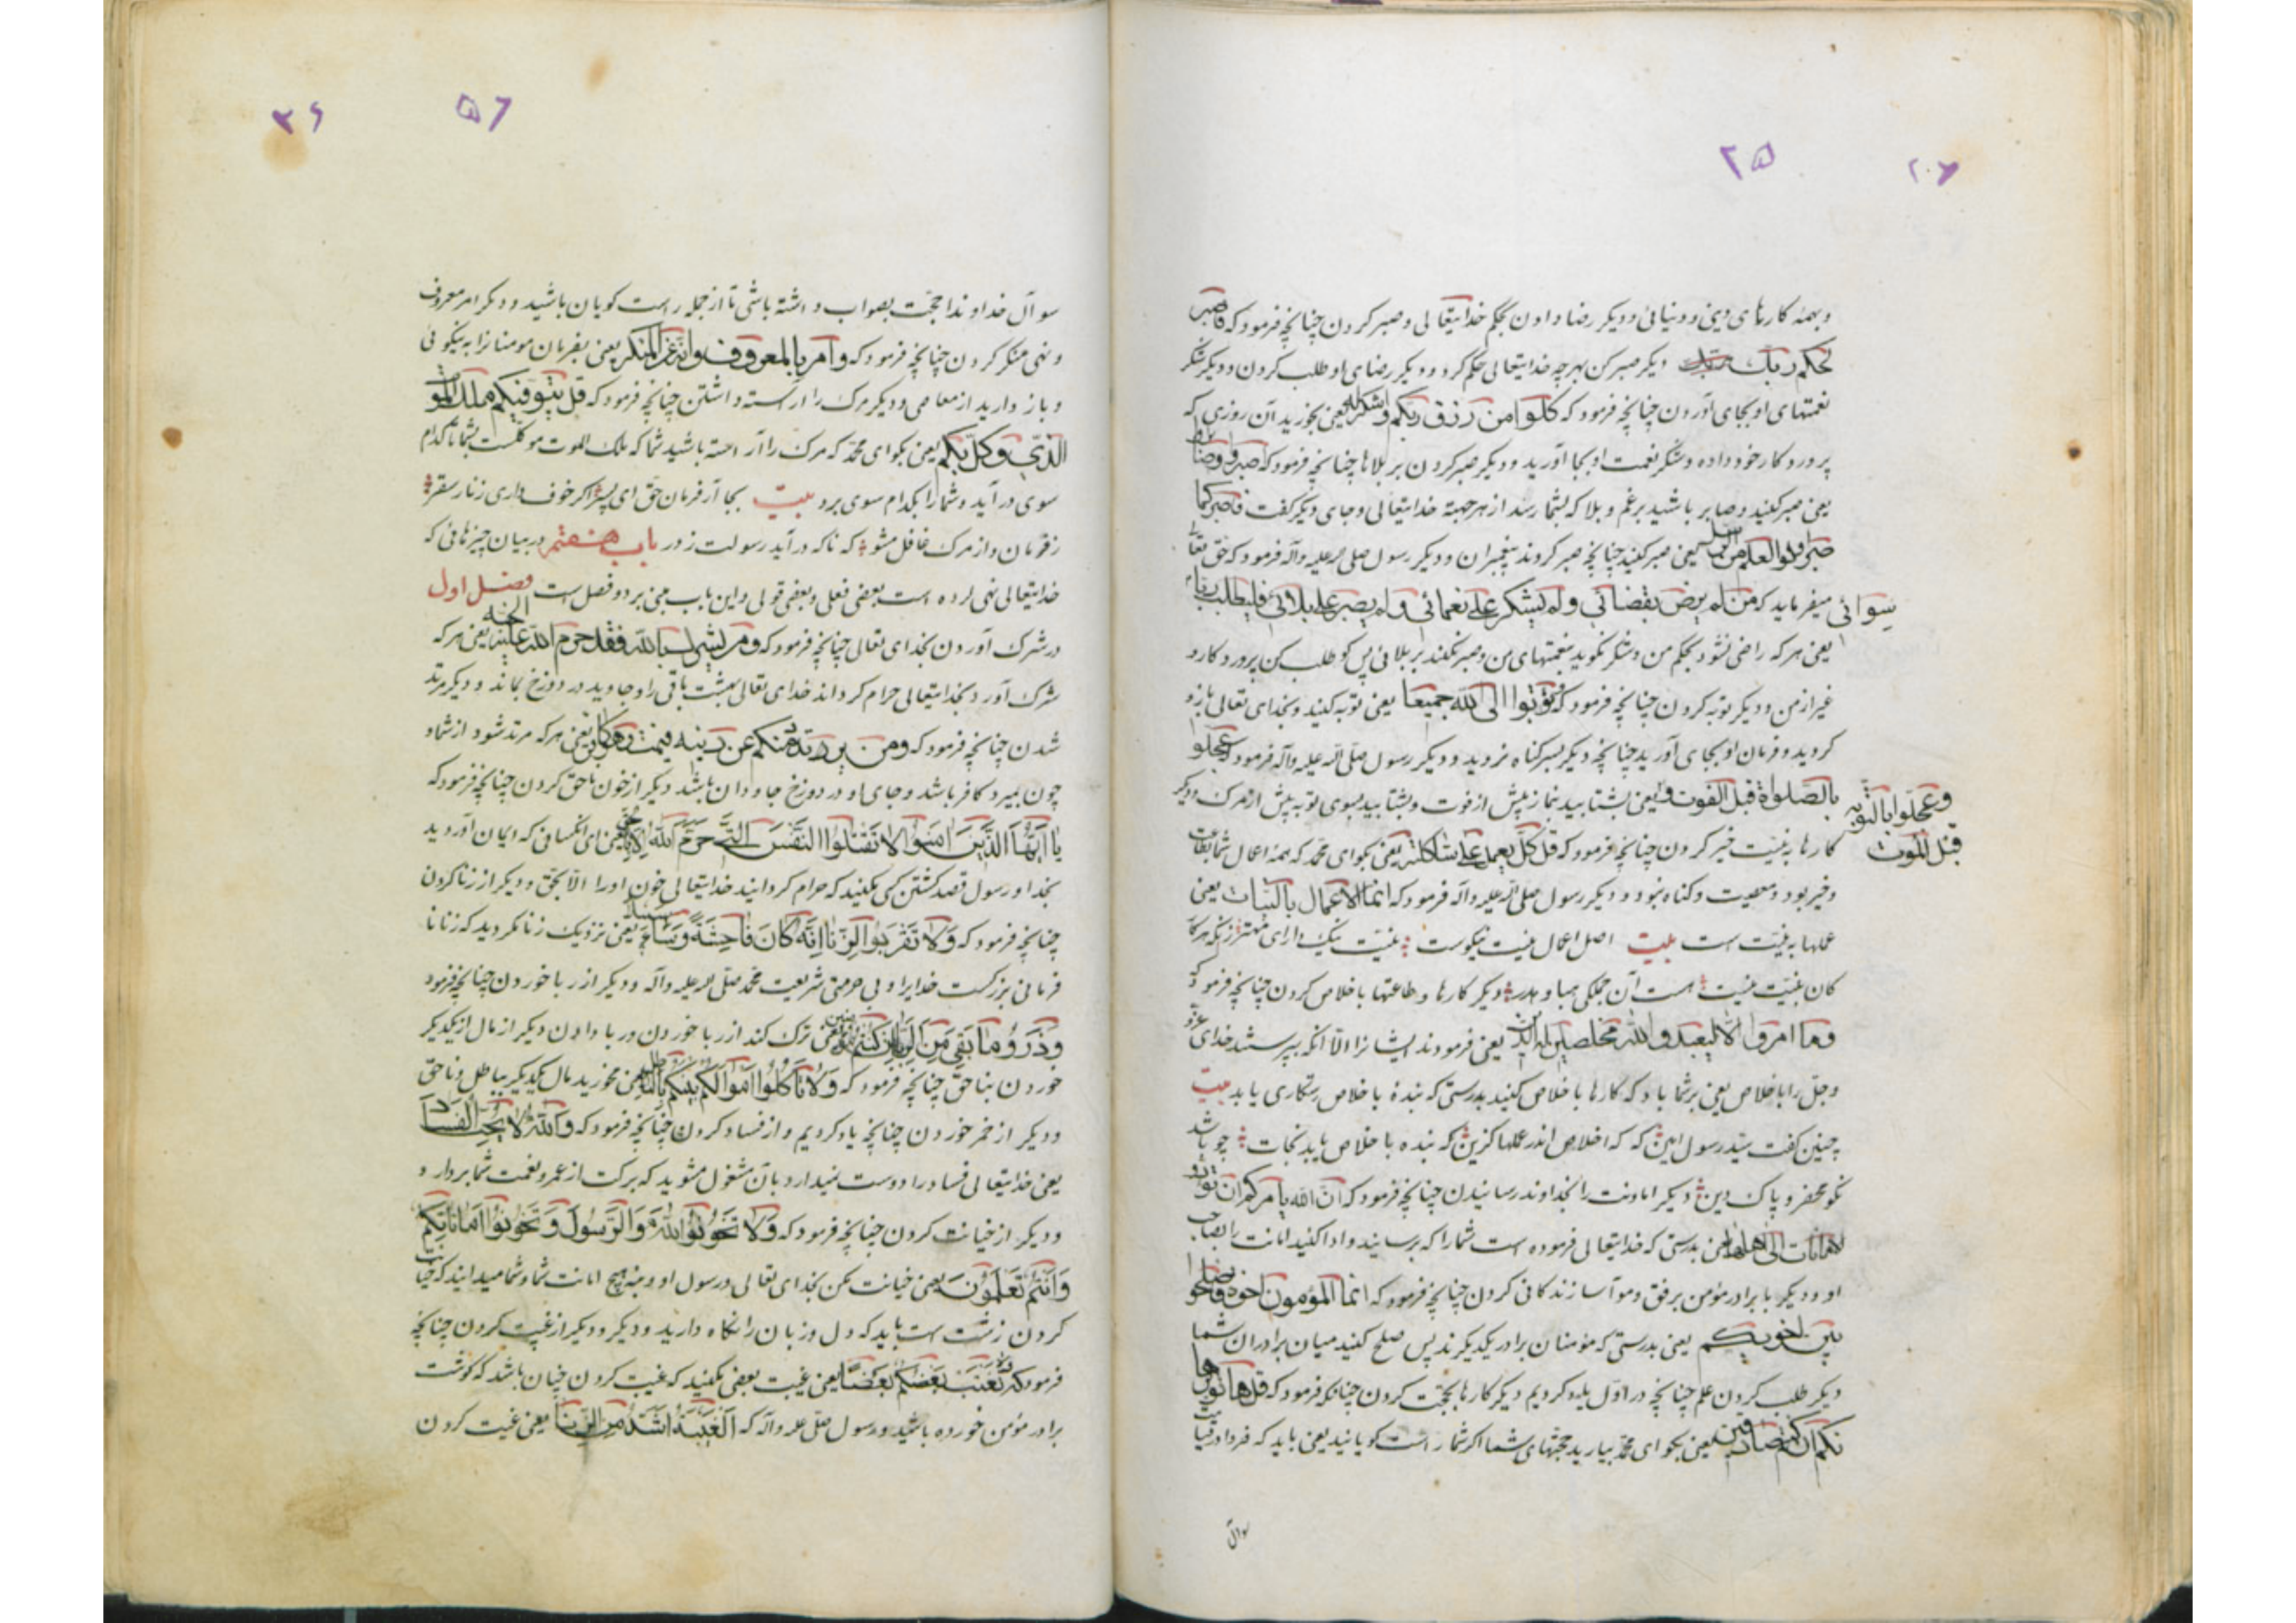 ۲۵
و بهمه کارهای دینی و دنیائی و دیگر رضا دادن بحکم خدایتعالی و صبر کردن چنانچه فرمود که فاصبر
لحکم ربک دیگر صبر کن بهرچه خدایتعالی حکم کرد و دیگر رضای او طلب کردن و دیگر شکر
نعمتهای او بجای آوردن چنانچه فرمود که کلوا من رزق ربکم واشکروا له یعنی بخورید آن روزی که
پروردکار خود داده و شکر نعمت او بجا آورید و دیگر صبر کردن بر بلاها چنانچه فرمود که اصبروا وصابروا
یعنی صبر کنید و صابر باشید بر غم و بلا که بشما رسد از هر جهته خدایتعالی و جای دیگر گفت فاصبر کما
صبر اولوا العزم من الرسل یعنی صبر کنید چنانچه صبر کردند پیغمبران و دیگر رسول صلی الله علیه وآله فرمود که حق تعالی
میفرماید که من لم یرض بقضائی ولم یشکر علی نعمائی ولم یصبر علی بلائی فلیطلب ربا سوائی
یعنی هر که راضی نشود بحکم من و شکر نکوید بنعمتهای من و صبر نکند بر بلائی پس کو طلب کن پروردکار و
غیر از من و دیگر توبه کردن چنانچه فرمود که توبوا الی الله جمیعا یعنی توبه کنید و بخدای تعالی باز و
کردید و فرمان او بجای آورید چنانچه دیگر بسر کناه نروید و دیگر رسول صلی الله علیه وآله فرمود که عجلوا
بالصلواة قبل الفوت و یعنی بشتابید بنماز پیش از فوت و بشتابید بسوی توبه پیش از مرک و دیگر
وعجلوا بالتوبه
قبل الموت
کارها به نیت خیر کردن چنانچه فرمود که قل کل یعمل علی شاکلته یعنی بکو ای محمد که همه اعمال شما بطاعت
و خیر بود و معصیت و کناه نبود و دیگر رسول صلی الله علیه وآله فرمود که انما الاعمال بالنیات یعنی
عملها به نیت است بیت اصل اعمال نیت نیکوست نیت نیک دار ای مهتر زانکه هر کار
کان به نیت نیست هست آن جملکی هبا و هدر و دیگر کارها و طاعتها باخلاص کردن چنانچه فرمود که
وما امروا الا لیعبدوا الله مخلصین له الدین یعنی فرمودند ایشانرا الا آنکه بپرستند خدای عز و
وجل را باخلاص یعنی بر شما باد که کارها باخلاص کنید بدرستی که بندۀ باخلاص رستکاری یابد بیت
چنین کفت سید رسول امین که اخلاص اندر عملها کزین که بنده باخلاص یابد نجات چو باشد
نکو محضر و پاک دین و دیگر امانت را بخداوند رسانیدن چنانچه فرمود که ان الله یامرکم ان تودوا
الامانات الی اهلها یعنی بدرستی که خدایتعالی فرموده است شما را که برسانید و ادا کنید امانت را بصاحب
او و دیگر با برادر مؤمن برفق و مواسا زندکانی کردن چنانچه فرمود که انما المؤمنون اخوة فاصلحوا
بین اخویکم یعنی بدرستی که مؤمنان برادر یکدیکرند پس صلح کنید میان برادران شما
دیگر طلب کردن علم چنانچه در اول یاد کردیم دیگر کارها بحجت کردن چنانکه فرمود که قل هاتوا برها
نکم ان کنتم صادقین یعنی بکو ای محمد بیارید حجتهای شما اگر شما راست کویانید یعنی باید که فردا در قیامت
سوال
۵۶ ۲۶
سوال خداوند را حجت بصواب داشته باشی تا از جمله راست کویان باشید و دیگر امر معروف
و نهی منکر کردن چنانچه فرمود که وامر بالمعروف وانه عن المنکر یعنی بفرمان مومنانرا به نیکوئی
و باز دارید از معاصی و دیگر مرک را آراسته داشتن چنانچه فرمود که قل یتوفیکم ملک الموت
الذی وکل بکم یعنی بکو ای محمد که مرک را آراسته باشید شما که ملک الموت موکلست بشما تا کدام
سوی در آید و شما را بکدام سوی برد بیت بجا آر فرمان حق ای پسر اکر خوف داری ز نار سقر
ز فرمان و از مرک غافل مشو که ناکه در آید رسولت ز در باب هفتم در بیان چیزهائی که
خدایتعالی نهی کرده است بعضی فعلی و بعضی قولی و این باب مبنی بر دو فصل است فصل اول
در شرک آوردن بخدای تعالی چنانچه فرمود که ومن یشرک بالله فقد حرم الله علیه الجنه یعنی هر که
شرک آورد بخدایتعالی حرام کرداند خدای تعالی بهشت باقی را و جاوید در دوزخ بماند و دیگر مرتد
شدن چنانچه فرمود که ومن یرتدد منکم عن دینه فیمت وهو کافر یعنی هر که مرتد شود از شما و
چون بمیرد کافر باشد و جای او در دوزخ جاودان باشد دیگر از خون ناحق کردن چنانچه فرمود که
یا ایها الذین امنوا لا تقتلوا النفس التی حرم الله الا بالحق یعنی ای انکسانی که ایمان آوردید
بخدا و رسول قصد کشتن کسی مکنید که حرام کردانید خدایتعالی خون او را الا بحق و دیگر از زنا کردن
چنانچه فرمود که ولا تقربوا الزنا انه کان فاحشة وساء سبیلا یعنی نزدیک زنا نکردید که زنا نا
فرمانی بزرکست خدایرا و بی حرمتی شریعت محمد صلی الله علیه وآله و دیگر از ربا خوردن چنانچه فرمود
وذروا ما بقی من الربا ان کنتم مؤمنین یعنی ترک کنند از ربا خوردن و ربا دادن دیگر از مال از یکدیکر
خوردن بناحق چنانچه فرمود که ولا تاکلوا اموالکم بینکم بالباطل یعنی مخورید مال یکدیکر بباطل و ناحق
و دیگر از خمر خوردن چنانچه یاد کردیم و از فساد کردن چنانچه فرمود که والله لا یحب الفساد
یعنی خدایتعالی فساد را دوست نمیدارد بآن مشغول مشوید که برکت از عمر و نعمت شما بردارد
و دیگر از خیانت کردن چنانچه فرمود که ولا تخونوا الله والرسول وتخونوا اماناتکم
وانتم تعلمون یعنی خیانت مکن بخدای تعالی و رسول او و منه هیچ امانت شما و شما میدانید که خیانت
کردن زشت است باید که دل و زبان را نکاه دارید و دیگر و دیگر از غیبت کردن چنانچه
فرمود که لا یغتب بعضکم بعضا یعنی غیبت بعضی مکنید که غیبت کردن چنان باشد که کوشت
برادر مؤمن خورده باشید و رسول صلی الله علیه وآله که الغیبة اشد من الزنا یعنی غیبت کردن